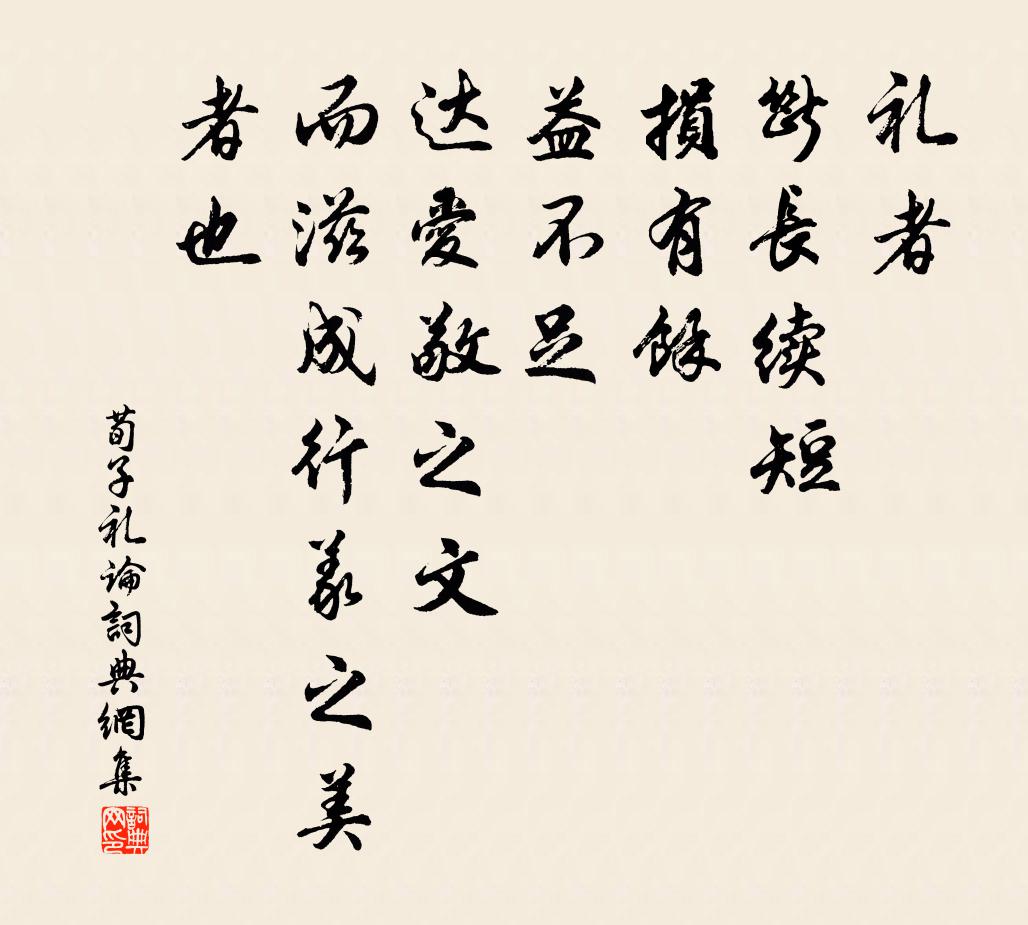 礼者
斷長續短
損有餘
益不足
达愛敬之文
而滋成行義之美
者也
荀子礼論詞典網集
詞典网印